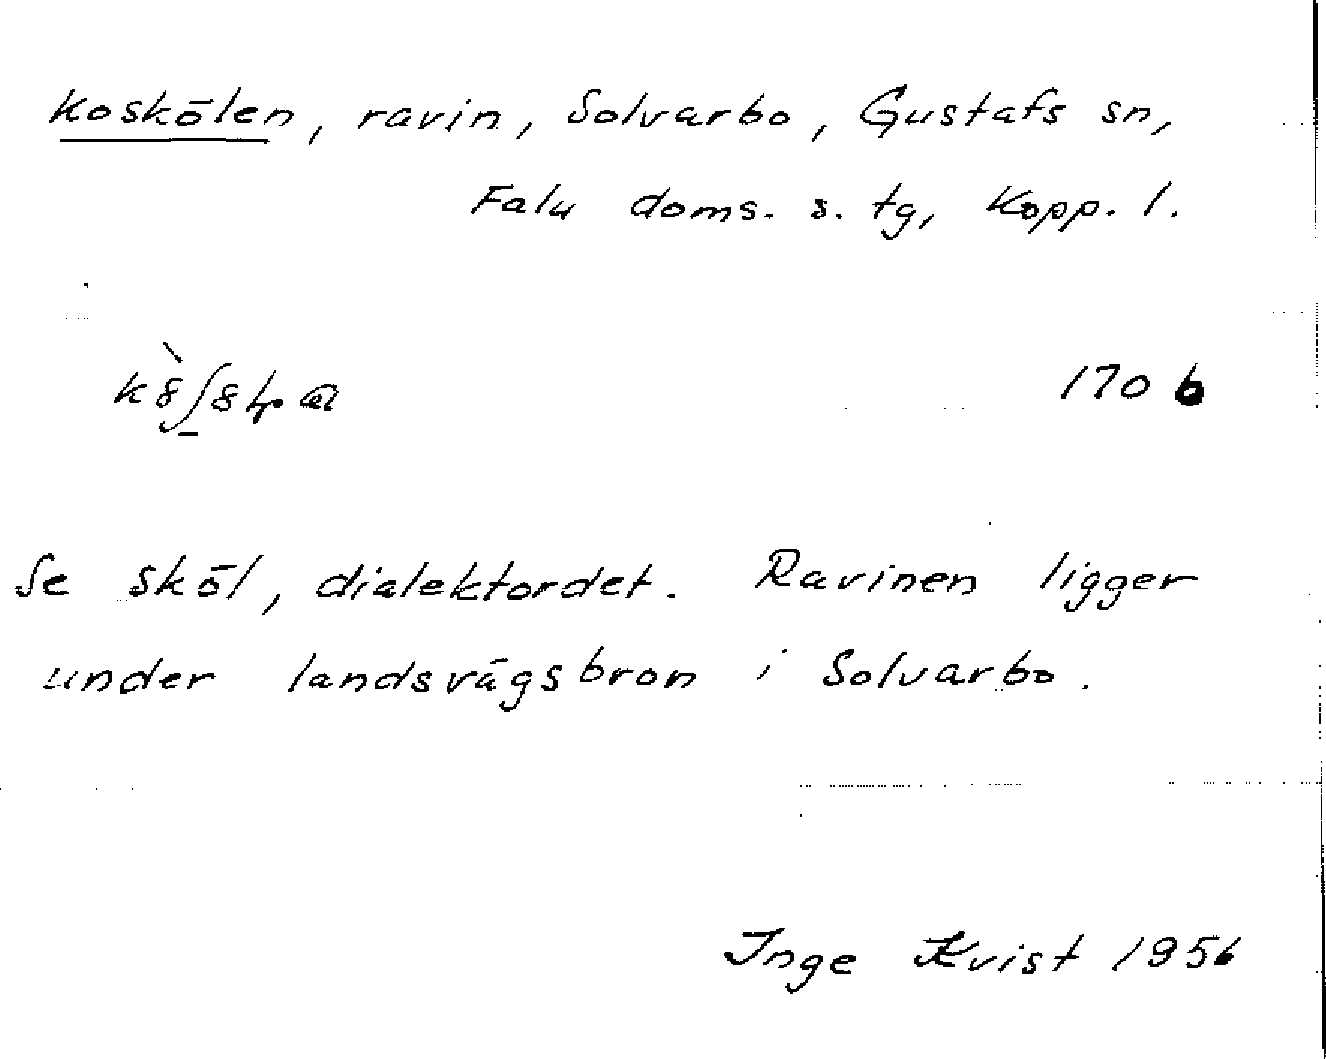 Koskölen, ravin, Solvarbo, Gustafs sn,
Falu doms. s. tg, Kopp. l.
170 b
Se sköl, dialektordet. Ravinen ligger
under landsvägsbron i Solvarbo.
Inge Kvist 1956